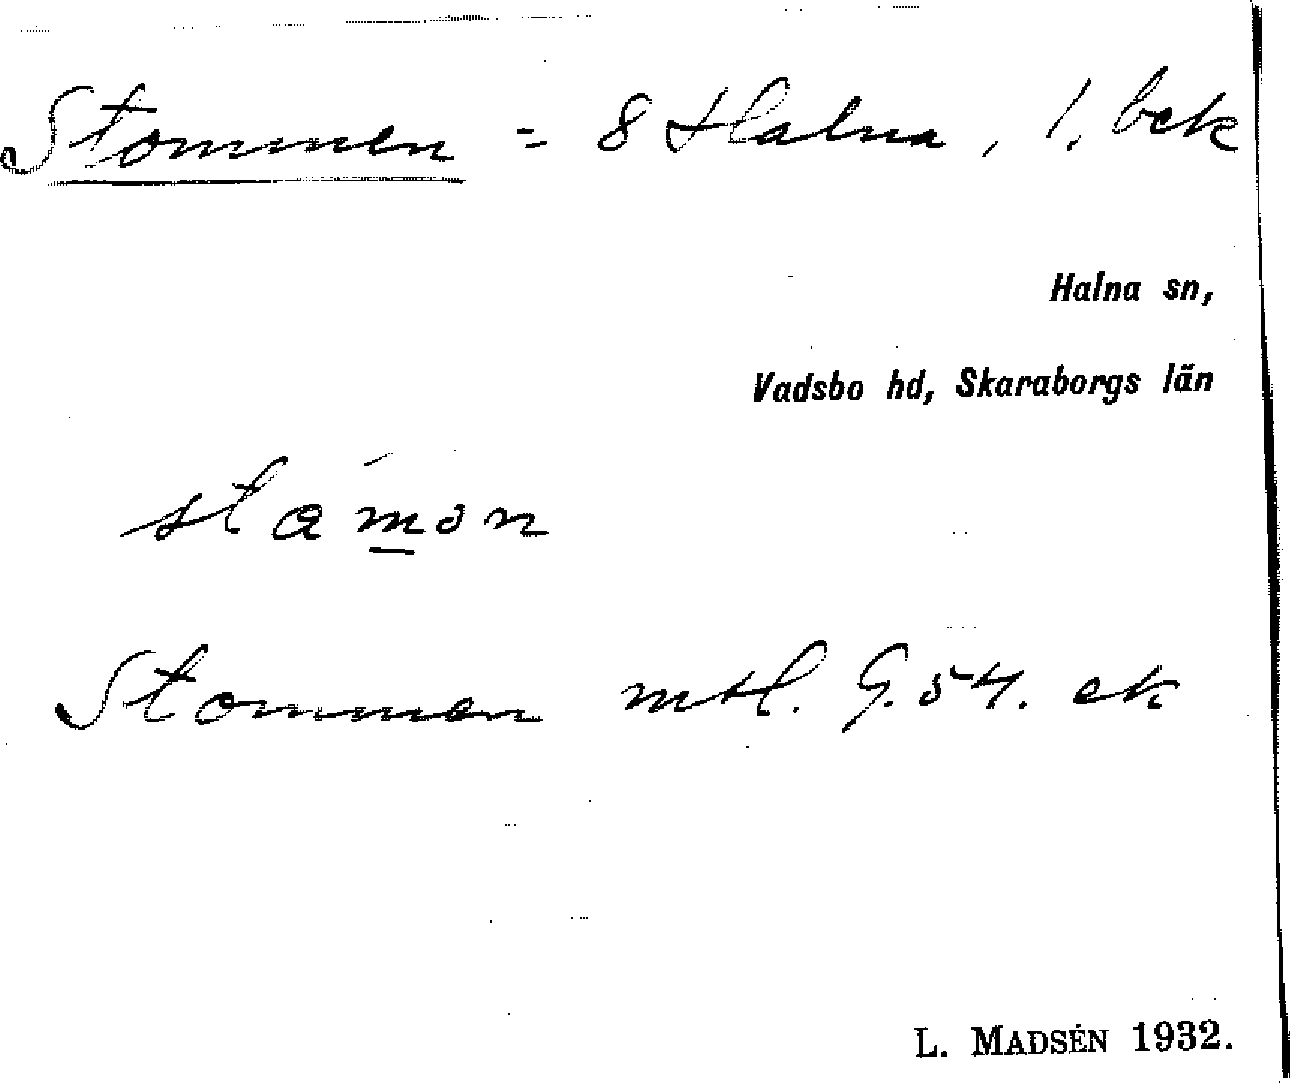 Stommen = 8 Halna, 1. bek
Halna sn,
Vadsbo hd, Skaraborgs län
stamon
Stommen mtl. G. 54. ek
L. MADSÉN 1932.